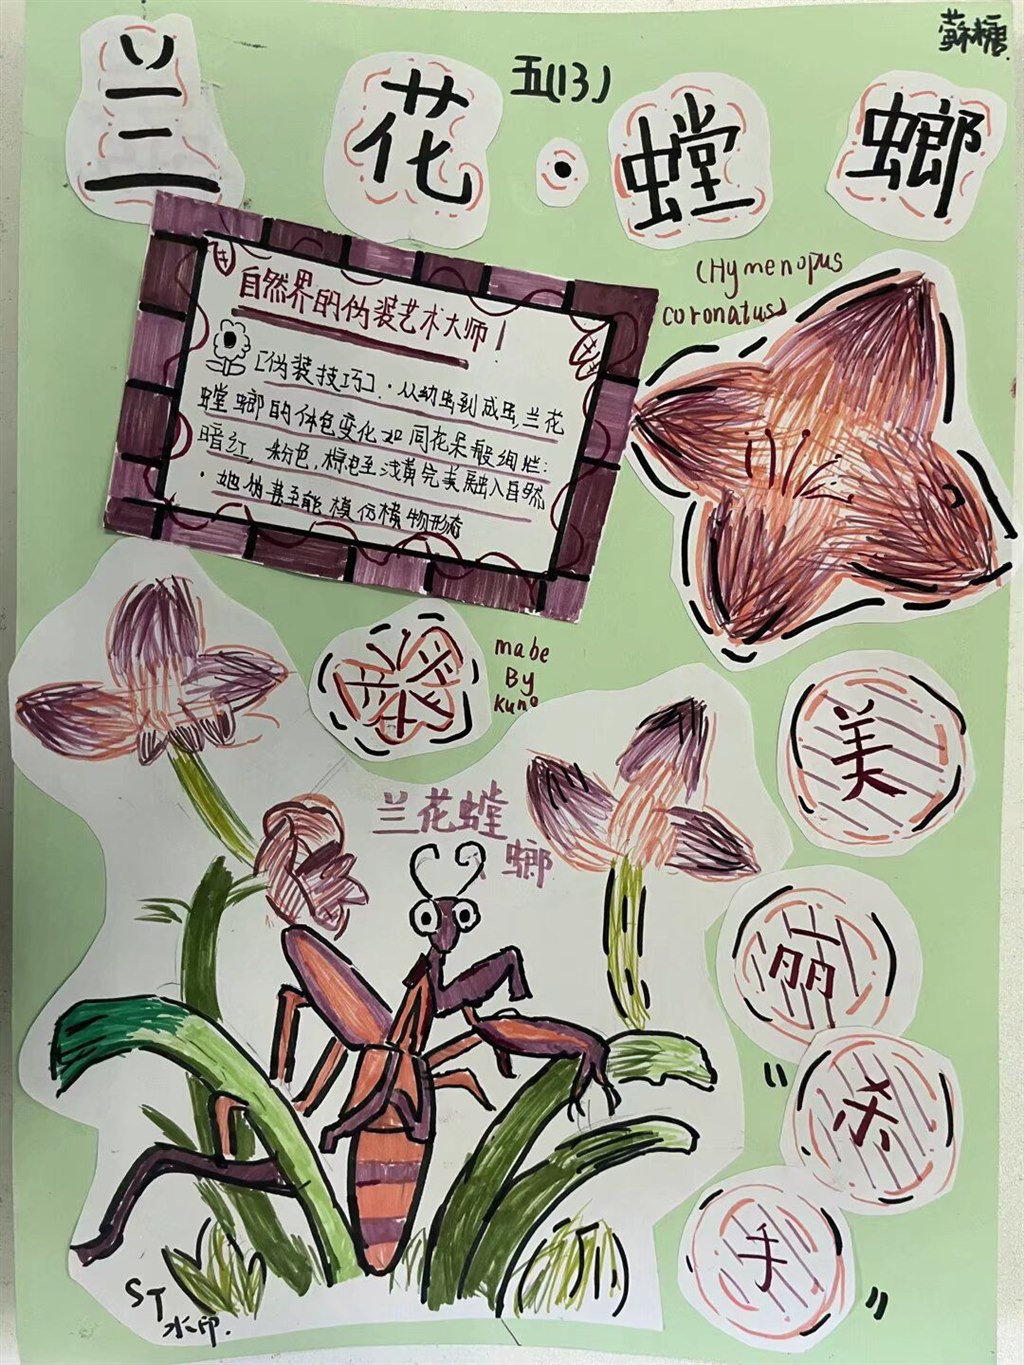 蘇糖.
五(13)
兰花·螳螂
(Hymenopus
coronatus)
自然界的伪装艺术大师!
[伪装技巧]·从幼虫到成虫,兰花
螳螂的体色变化如同花朵般绚烂:
暗红,粉色,棕色至浅黄完美融入自然
·她们甚至能模仿植物形态
mabe
By
kuno
兰花螳
螂
美
丽
"杀
手"
ST
水印.